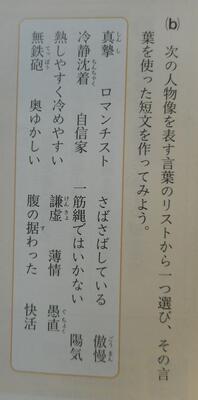 (b) 次の人物像を表す言葉のリストから一つ選び、その言
葉を使った短文を作ってみよう。
真摯 ロマンチスト さばさばしている 傲慢
冷静沈着 自信家 一筋縄ではいかない 陽気
熱しやすく冷めやすい 謙虚 薄情 愚直
無鉄砲 奥ゆかしい 腹の据わった 快活